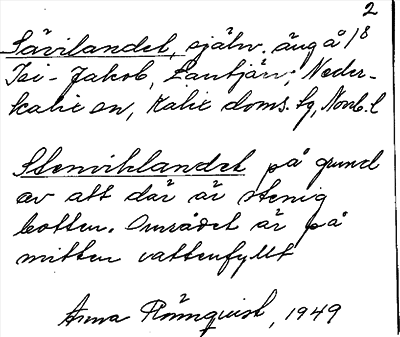 2
Sävilandet, själv. äng å 1/8
Isi-Jakob, Lantjärv; Neder-
kalix sn, Kalix doms. lg, Norrb. l
Stenviklandet på grund
av att där är stenig
botten. Området är på
mitten vattenfyllt
Anna Rönnquist, 1949